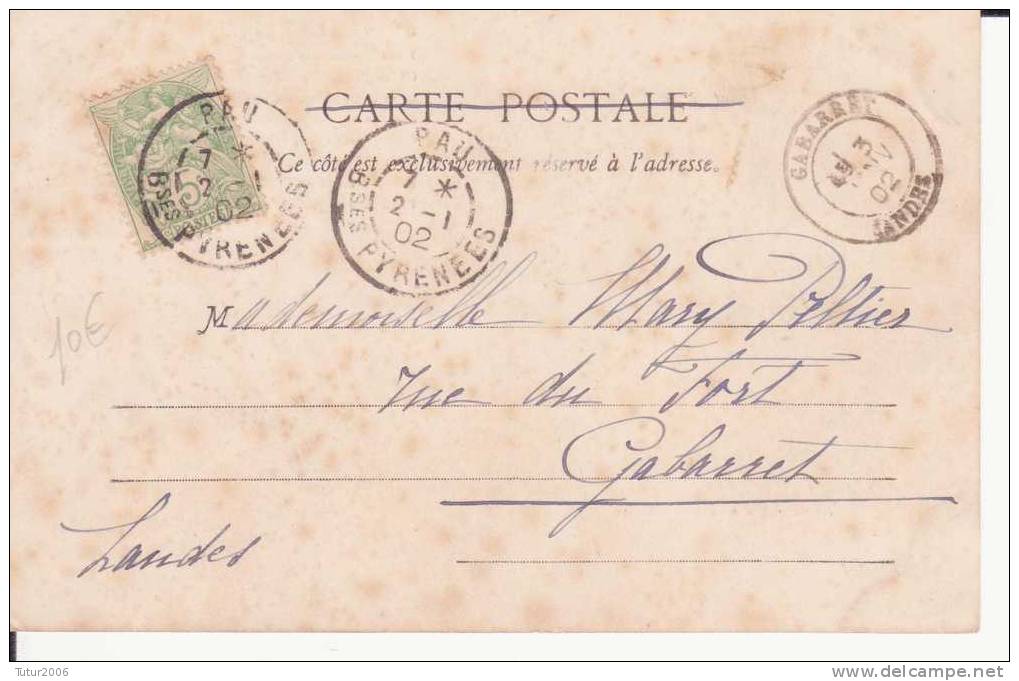 CARTE POSTALE
Ce côté est exclusivement réservé à l'adresse.
PAU
7 *
2 - 1
02
Bses PYRENEES
5
POSTES
PAU
7 *
2 - 1
02
Bses PYRENEES
GABARRET
3
02
LANDES
Mademoiselle Mary Peltier
rue du Fort
Gabarret
Landes
10€
Tutur2006
www.delcampe.net